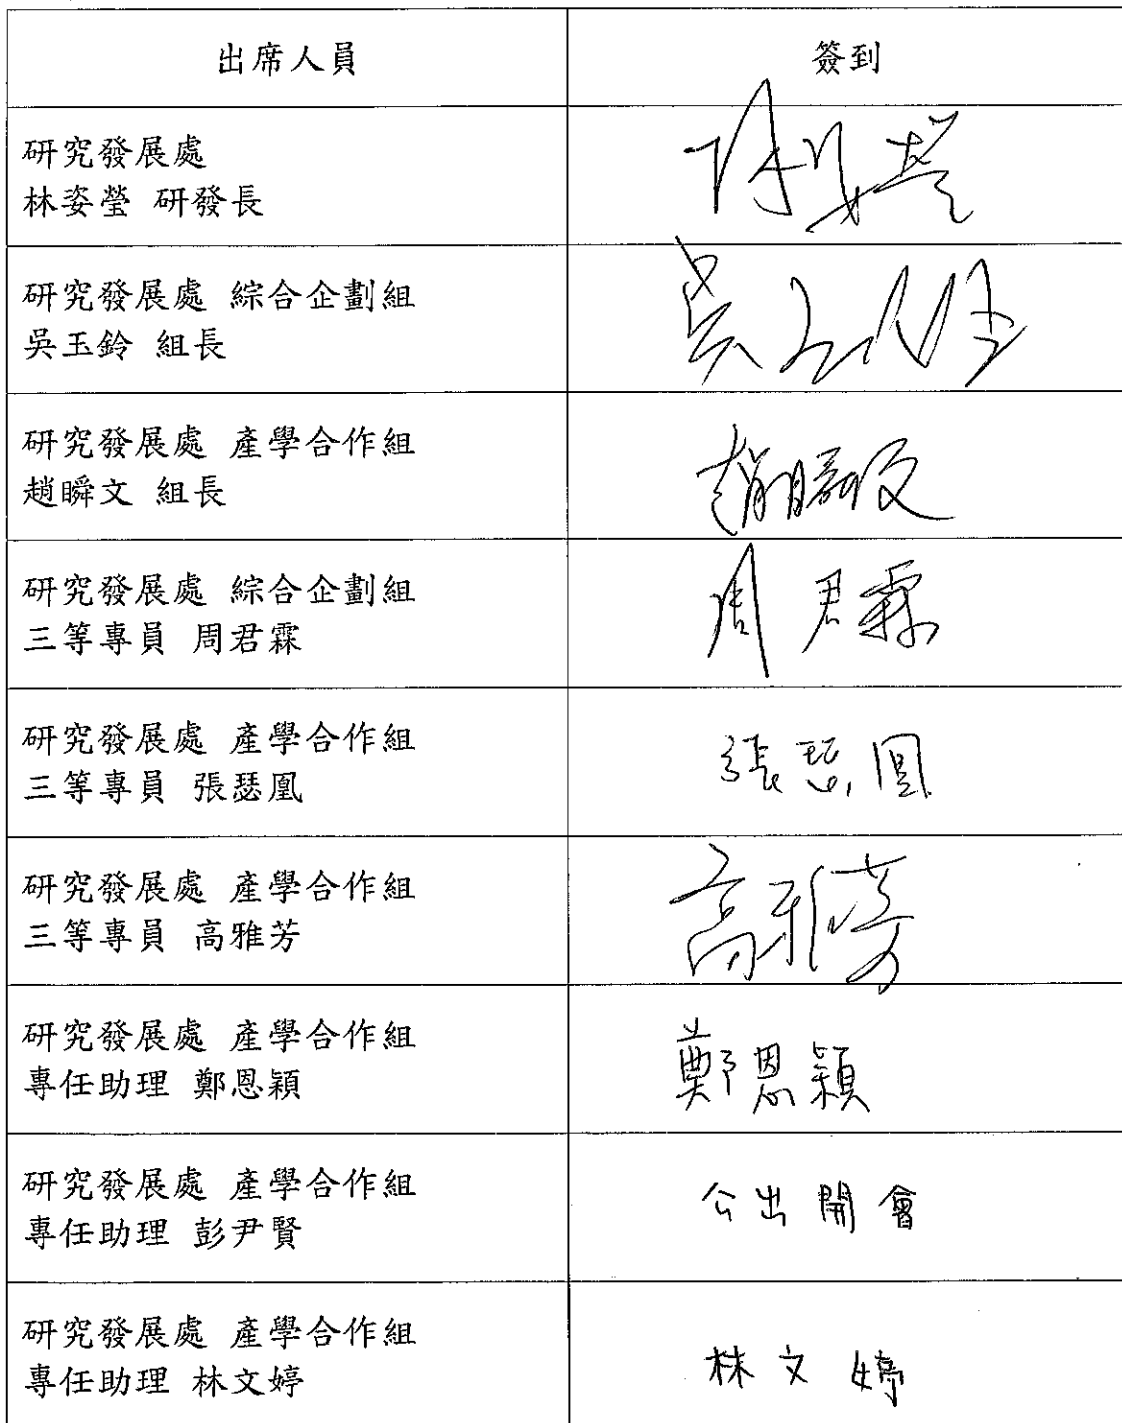 出席人員
簽到
研究發展處
林姿瑩 研發長
林姿瑩
研究發展處 綜合企劃組
吳玉鈴 組長
吳玉鈴
研究發展處 產學合作組
趙瞬文 組長
趙瞬文
研究發展處 綜合企劃組
三等專員 周君霖
周君霖
研究發展處 產學合作組
三等專員 張瑟凰
張瑟凰
研究發展處 產學合作組
三等專員 高雅芳
高雅芳
研究發展處 產學合作組
專任助理 鄭恩穎
鄭恩穎
研究發展處 產學合作組
專任助理 彭尹賢
公出開會
研究發展處 產學合作組
專任助理 林文婷
林文婷